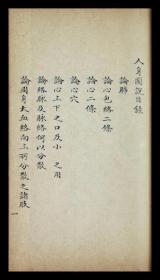 人身圖說目錄
論肺
論心包絡二條
論心二條
論心穴
論心上下之口及小 之用
論絡脉及脉絡何以分散
論周身大血絡向上所分散之諸肢
一